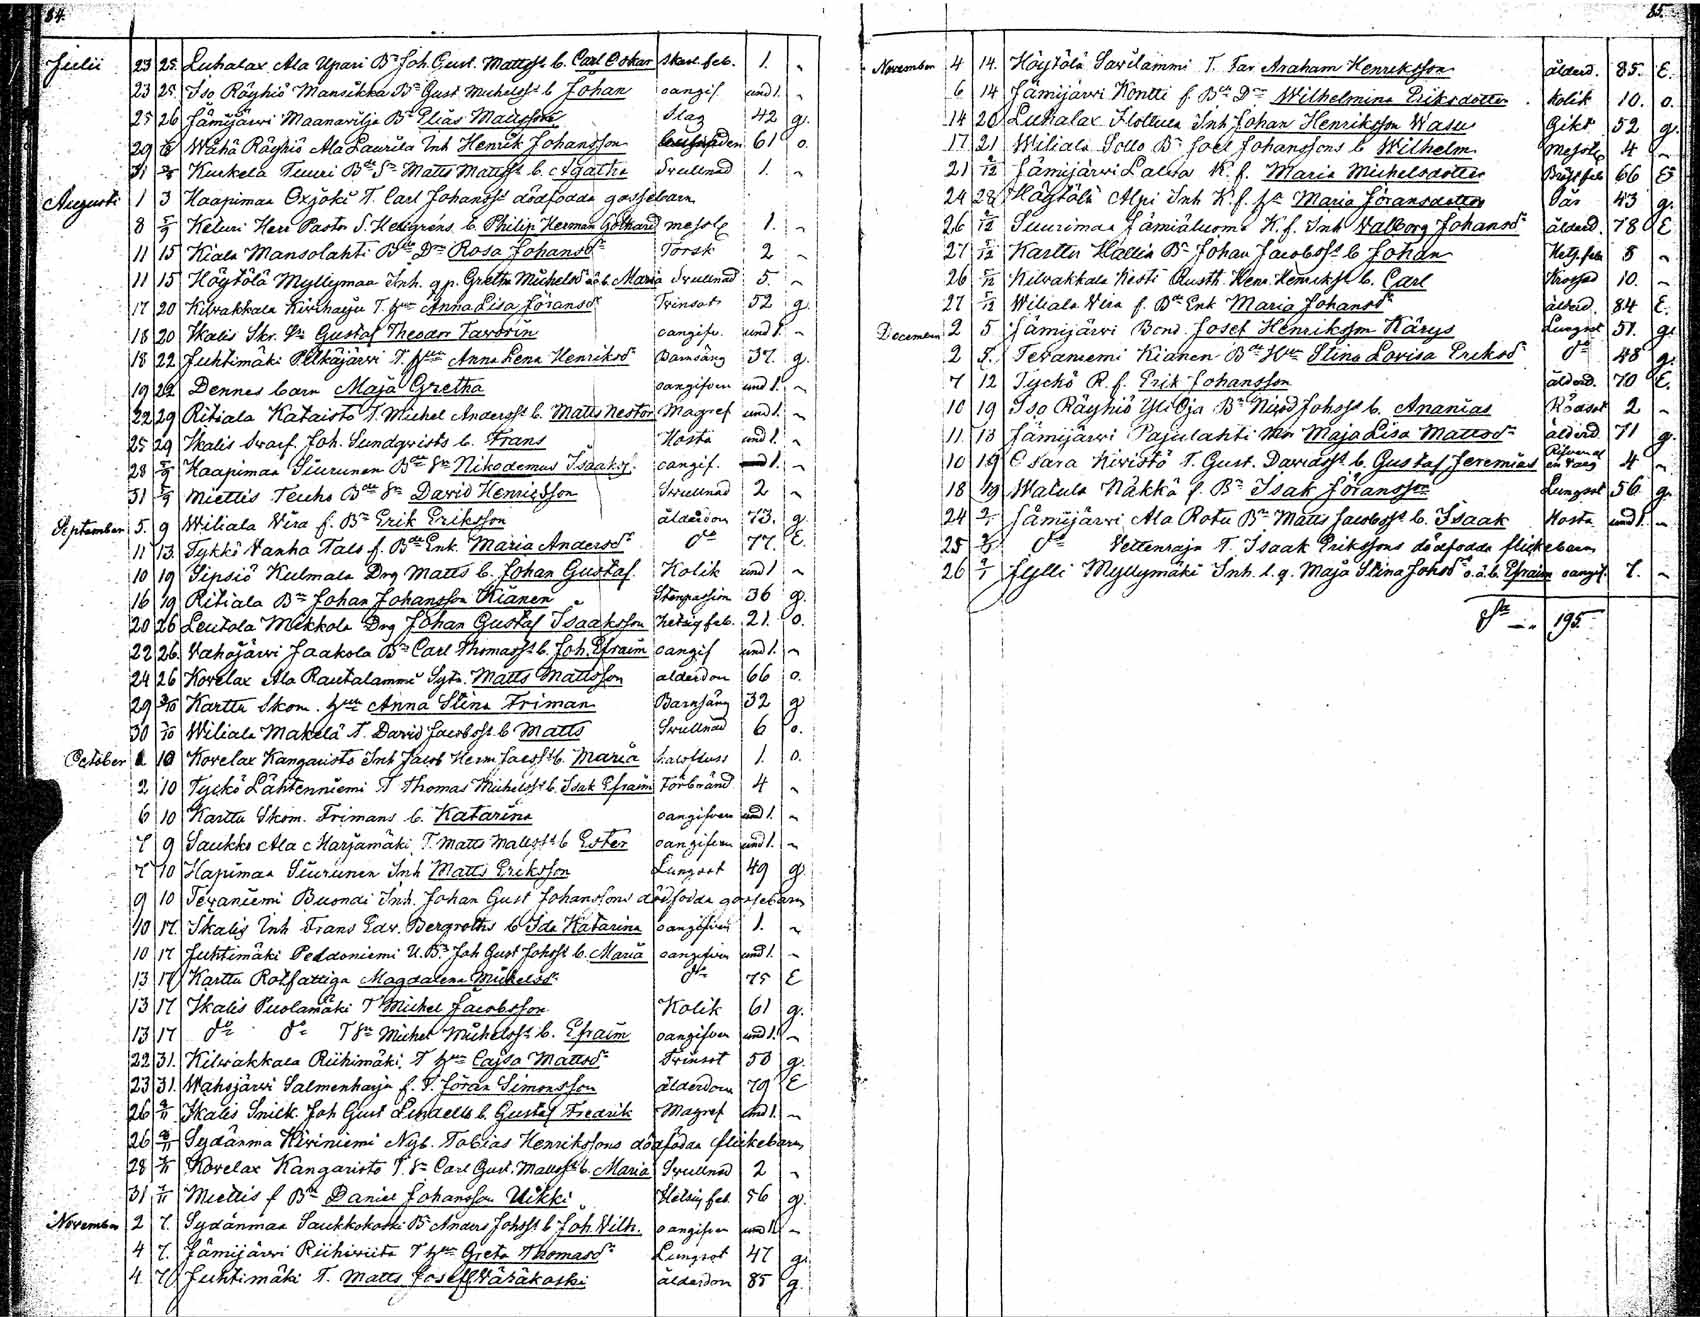 84.
Julii 23 25 Luhalax Ala Upari Bn Joh. Gust. Mattss b. Carl Oskar Skarl.feb. 1. „
23 25 Iso Röyhiö Mansikka Bn Gust Michelss b Johan oangif. und 1. „
25 26 Jämijärvi Maanavilja Bn Elias Mattsson Slag 42 g.
29 Wähä Röyhiö Ala Laurila Inh Henrik Johansson 61 o.
31 Kurkela Tuuri Bde Sn Matts Mattss b. Agatha Svullnad 1. „
Augusti 1 3 Haapimaa Oxjoki T. Carl Johanss dödfödda gossebarn
8 Keturi Herr Pastor S. Hedgrens b. Philip Herman Gothard messl 1. „
11 15 Kiala Mansolahti Bde Dr Rosa Johansdr Torsk 2 „
11 15 Höytölä Myllymaa Inh. q.p. Gretha Michelsd oä b. Maria Svullnad 5. „
17 20 Kilvakkala Kiviharju T. hun Anna Lisa Göransdr Tvinsot 52 g.
18 20 Ikalis Skr. Sn Gustaf Theodor Tavorin oangifv. und 1. „
18 22 Juhtimäki Peltäjärvi T. hun Anna Lena Henriksdr Barnsäng 37. g.
19 22 Dennes barn Maja Gretha oangifven und 1. „
22 29 Ritiala Kataisto T. Michel Anderss b. Matts Nestor Magref und 1. „
25 29 Ikalis Svarf. Joh. Sundqvists b. Frans Hosta und 1. „
28 Haapimaa Siurunen Bde Sn Nikodemus Isaaks. oangif. 1. „
31 Miettis Teuho Bde Sn David Henricsson Svullnad 2 „
September 5. 9 Wiliala Wira f. Bn Erik Eriksson ålderdom 73. g.
11 13. Tykkö Vanha Talo f. Bde Enk. Maria Andersdr do 77. E.
10 19 Sipsiö Kulmala Drg Matts b. Johan Gustaf. Kolik und 1 „
16 19 Ritiala Bn Johan Johansson Kianen Stenpassion 36 g.
20 26 Leutola Mekkola Drg Johan Gustaf Isaaksson hetsig feb. 21. o.
22 26. Vahojärvi Jaakola Bn Carl Thomass b. Joh. Efraim oangif und 1. „
24 26 Kovelax Ala Rautalammi Syt. Matts Mattsson alderdom 66 o.
29 Karttu Skom. hun Anna Stina Friman Barnsäng 32 g
30 Wiliala Makelä T. David Jacobss b Matts Svullnad 6 o.
October 1 10 Kovelax Kangaristo Inh Jacob Herm Jacss b. Maria halsfluss 1. o.
2 10 Tyckö Lähtenniemi T Thomas Michelss b. Isak Efraim Förbränd 4 „
6 10 Karttu Skom. Frimans b. Katarina oangifven und 1. „
7 9 Saukko Ala Harjamäki T. Matts Mattss b Ester oangifven und 1. „
7 10 Hapimaa Siurunen Inh Matts Eriksson Lungsot 49 g
9 10 Tevaniemi Buondi Inh. Johan Gust Johanssons dödfödda gossebarn
10 17. Ikalis Inh Frans Edv. Bergroths b Ida Katarina oangifven 1. „
10 17 Juhtimäki Peldoniemi U. Bn Joh Gust Johss b. Maria oangifven und 1. „
13 17 Karttu Rotfattiga Magdalena Michelsdr do 75 E
13 17 Ikalis Puolamäki T Michel Jacobsson Kolik 61 g.
13 17 do do T Sn Michel Michelss b. Efraim oangifven und 1. „
22 31. Kilvakkala Riihimäki T hun Cajsa Mattsdr Tvinsot 50 g.
23 31. Wahojärvi Salmenharju f. T. Göran Simonsson ålderdom 79 E
26 Ikalis Snick. Joh Gust Lindells b. Gustaf Fredrik Magref und 1. „
26 Sydänma Kiviniemi Nyb. Tobias Henrikssons dödfödda flickebarn
28 Kovelax Kangaristo T. Sn Carl Gust. Mattss b. Maria Svullnad 2 „
31 Miettis f Bn Daniel Johansson Uikki Hetsig feb. 56 g.
November 2 7. Sydänmaa Saukkokoski Bn Anders Johss b Joh. Vilh. oangifven und 1. „
4 7. Jämijärvi Riihiviita T hun Greta Thomasdr Lungsot 47 g.
4 7 Juhtimäki T. Matts Josefss Väräkoski ålderdom 85 g.
85.
November 4 14. Höytölä Savilammi T. Far Abraham Henriksson ålderd. 85. E.
6 14 Jämijärvi Kontti f. Bde Dr Wilhelmina Eriksdotter Kolik 10. o.
14 20 Luhalax Inh Johan Henriksson Wasu Gikt 52 g.
17. 21 Wiliala Sotto Bn Joel Johanssons b Wilhelm messl 4 „
21 Jämijärvi Lauha K. f. Maria Michelsdotter Bröstfeb 66 E
24 28 Höytölä Alpi Inh K. f. hu Maria Göransdotter Sår 43 g.
26 Suurimaa Jämiäluoma K. f. Inh Valborg Johansdr ålderd. 78 E
27 Karttu Hallia Bn Johan Jacobss b Johan Hets. feb 5 „
26 Kilvakkala Kesti Rusth. Henr. Henrikss b. Carl Krossad 10. „
27 Wiliala Vira f. Bde Enk Maria Johansdr ålderd. 84 E.
December 2 5 Jämijärvi Bond. Josef Henriksson Kärys Lungsot 51. g.
2 5. Tevaniemi Kianen Bde Hun Stina Lovisa Eriksdr do 48 g.
7 12 Tyckö R. f. Erik Johansson ålderd. 70 E.
10 19 Iso Röyhiö Yli Oja Bn Nicod Johss b. Ananias Rödsot 2 „
11. 13 Jämijärvi Pajulahti Mor Maja Lisa Mattsdr ålderd 71 g.
10 19 Osara Kivistö T. Gust. Davidss b. Gustaf Jeremias Rifven af en varg 4 „
18 19 Watula Näkkä f. Bn Isak Göransson Lungsot 56 g.
24 Jämijärvi Ala Rotu Bn Matts Jacobss b. Isaak Hosta und 1. „
25 do Vettenraja T. Isaak Erikssons dödfödda flickebarn
26 Jylli Myllymäki Inh. l. q. Maja Stina Johsdr o.ä. b. Efraim oangif. 7. „
Sa — „ 195